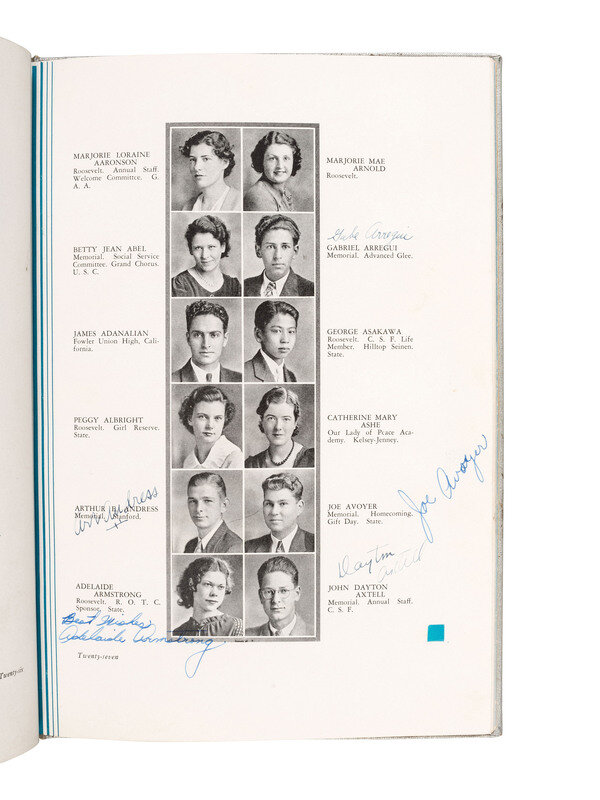 MARJORIE LORAINE
AARONSON
Roosevelt. Annual Staff.
Welcome Committee. G.
A. A.
BETTY JEAN ABEL
Memorial. Social Service
Committee. Grand Chorus.
U. S. C.
JAMES ADANALIAN
Fowler Union High, Cali-
fornia.
PEGGY ALBRIGHT
Roosevelt. Girl Reserve.
State.
ARTHUR B. ANDRESS
Memorial. Stanford.
ADELAIDE
ARMSTRONG
Roosevelt. R. O. T. C.
Sponsor. State.
Best Wishes
Adelaide Armstrong
Twenty-seven
MARJORIE MAE
ARNOLD
Roosevelt.
Gabe Arregui
GABRIEL ARREGUI
Memorial. Advanced Glee.
GEORGE ASAKAWA
Roosevelt. C. S. F. Life
Member. Hilltop Seinen.
State.
CATHERINE MARY
ASHE
Our Lady of Peace Aca-
demy. Kelsey-Jenney.
JOE AVOYER
Memorial. Homecoming.
Gift Day. State.
Joe Avoyer
Dayton
Axtell
JOHN DAYTON
AXTELL
Memorial. Annual Staff.
C. S. F.
Twenty-six